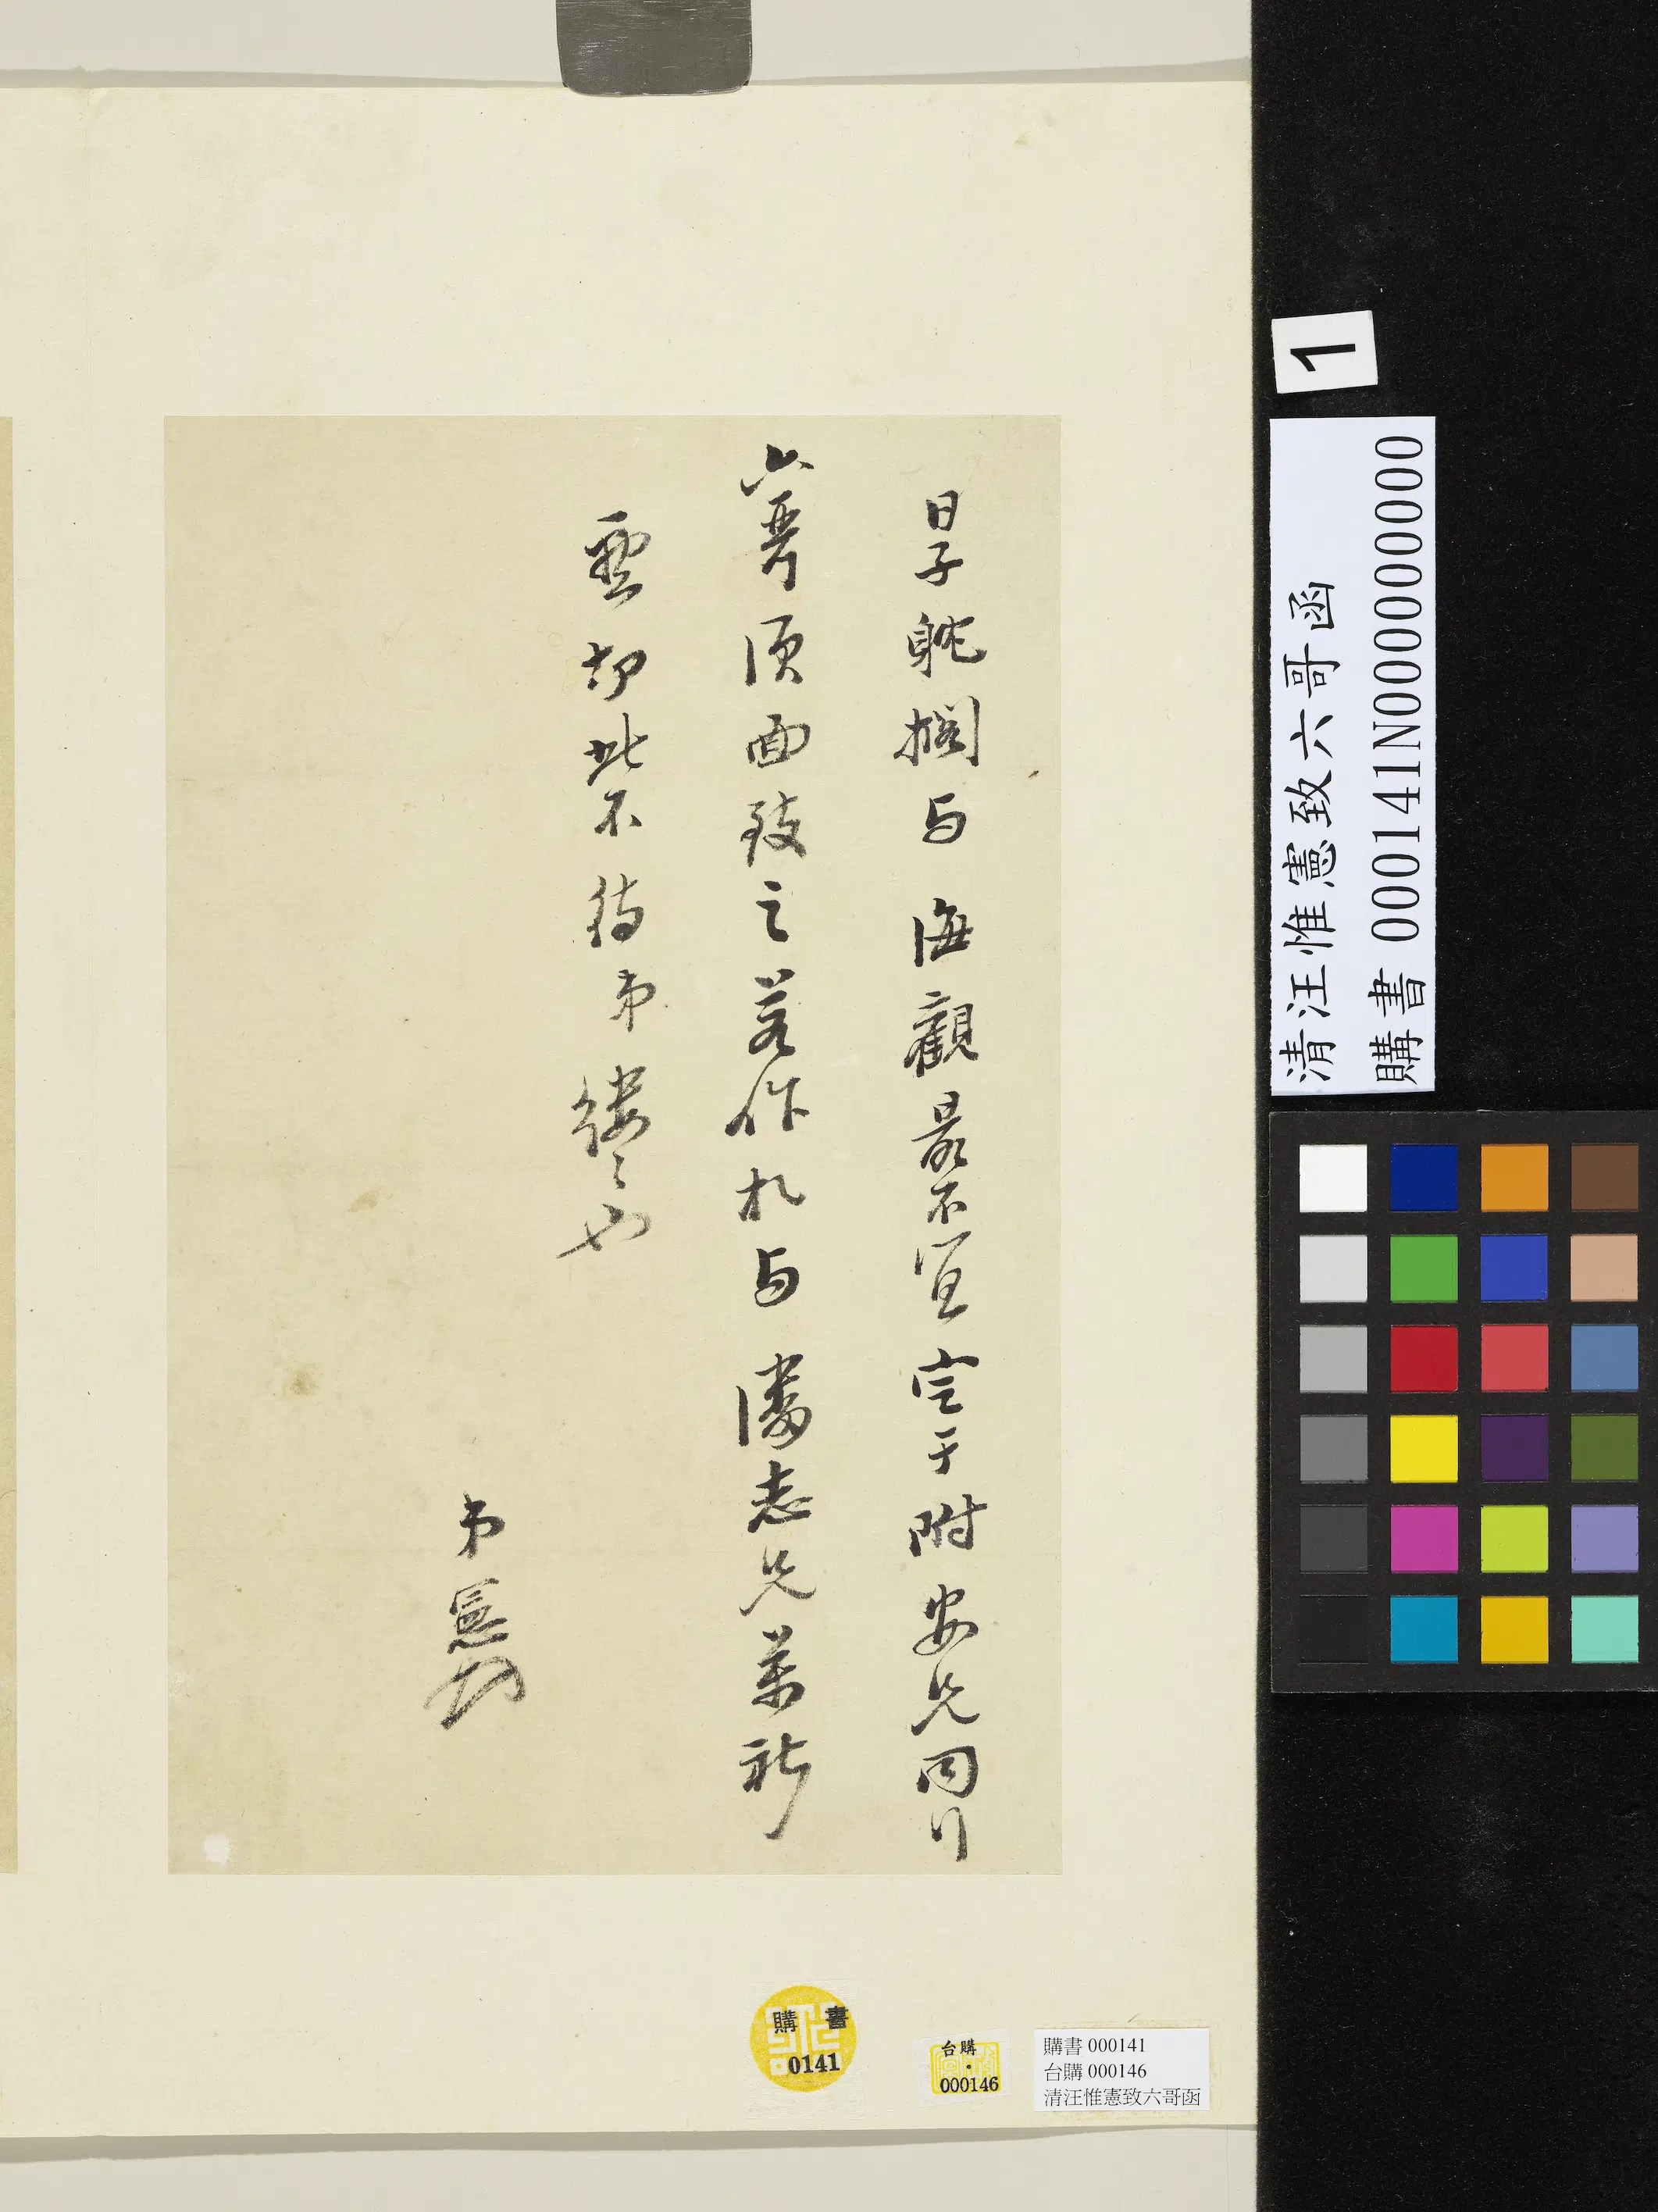 日子躭擱与海觀最不宜
定于附安兄同行
六哥須面致之若作札与
潘志兄萬祈
要却此不待弟縷々也
弟憲
1
清汪惟憲致六哥函
購書 000141N000000000
購書
0141
台購
・
000146
購書 000141
台購 000146
清汪惟憲致六哥函